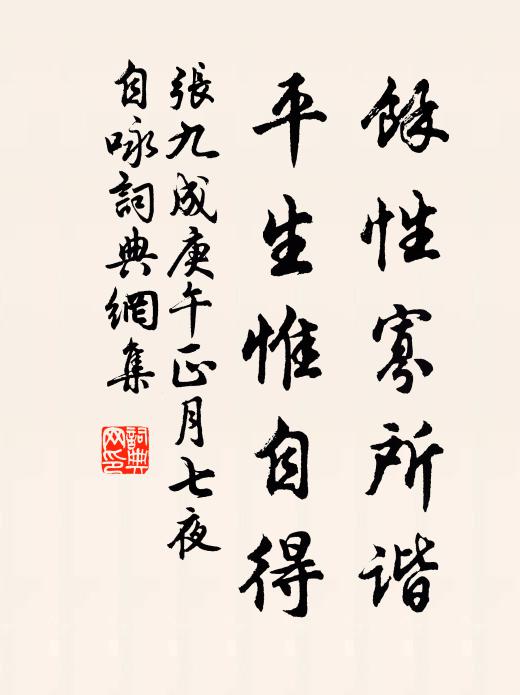 餘性寡所谐
平生惟自得
張九成庚午正月七夜
自咏詞典網集
詞典網印